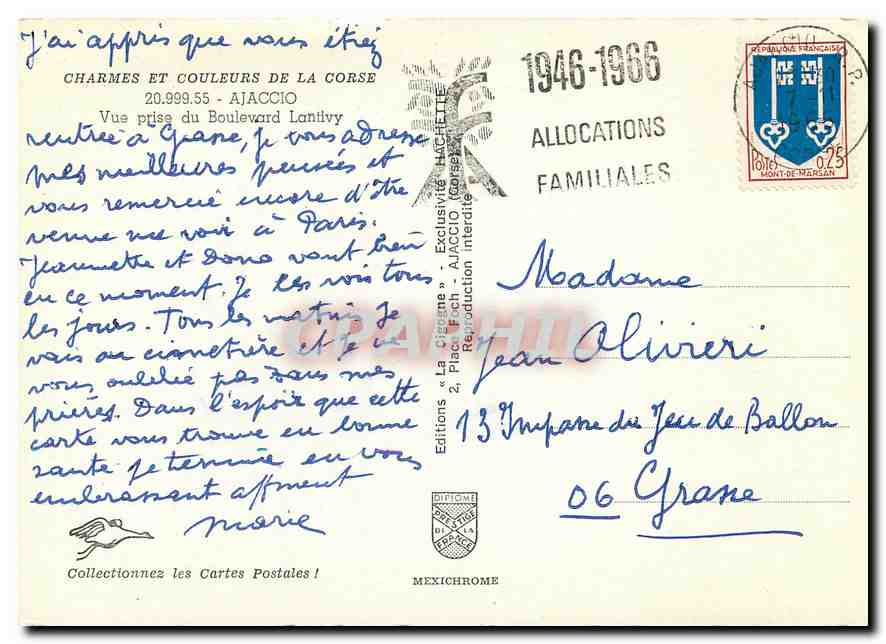 J'ai appris que vous étiez
CHARMES ET COULEURS DE LA CORSE
20.999.55 - AJACCIO
Vue prise du Boulevard Lantivy
rentrée à Grasse, je vous adresse
mes meilleures pensées et
vous remercie encore d'être
venue me voir à Paris.
Jeannette et Dono vont bien
en ce moment. Je les vois tous
les jours. Tous les matins je
vais au cimetière et je ne
vous oublie pas dans mes
prières. Dans l'espoir que cette
carte vous trouve en bonne
santé je termine en vous
embrassant affment
Marie
Collectionnez les Cartes Postales !
Editions « La Cigogne » - Exclusivité HACHETTE
2, Place Foch - AJACCIO (Corse)
Reproduction interdite
DIPLOME
PRESTIGE
DE LA
FRANCE
MEXICHROME
1946-1966
ALLOCATIONS
FAMILIALES
REPUBLIQUE FRANÇAISE
POSTES 0,25
MONT-DE-MARSAN
Madame
Jean Olivieri
13 Impasse du Jeu de Ballon
06 Grasse
CPAPHIL